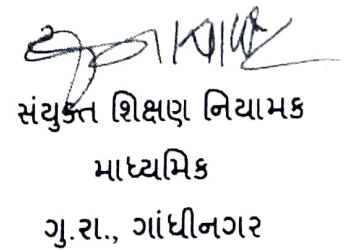 સંયુક્ત શિક્ષણ નિયામક
માધ્યમિક
ગુ.રા., ગાંધીનગર